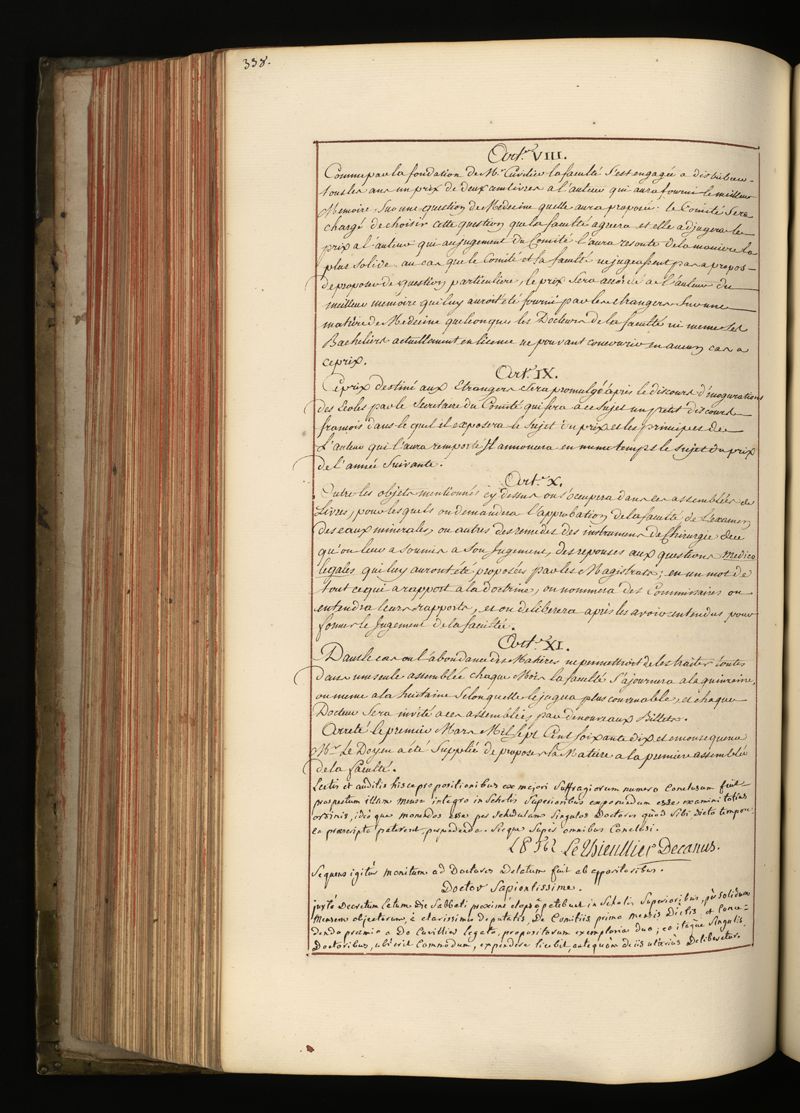 338.
Art.e VIII.
Comme par la fondation de Mr. Cuvilier la faculté s'est engagée a distribuer
tous les ans un prix de deux cent livres a l'auteur qui aura fourni le meilleur
Memoire, sur une question de Medecine quelle aura proposée; le Comité sera
chargé de choisir cette question que la faculté agreera et elle adjugera le
prix a l'auteur qui au jugement du Comité l'aura resoute de la maniere la
plus solide. au cas que le Comité et la faculté ne jugeassent pas a propos
de proposer de question particuliere, le prix sera assuré a l'auteur du
meilleur memoire qui luy auroit été fourni par les etrangers sur une
matière de Medecine quelconque les Docteurs de la faculté ni meme les
Bacheliers actuellement en licence ne pouvant concourir en aucun cas a
ce prix.
Art.e IX.
Ce prix destiné aux Etrangers sera promulgé après le discours d'inogurations
des Ecoles par le Secretaire du Comité qui fera a ce sujet un petit discours
francois dans lequel il exposera le sujet du prix et les principes de
L'auteur qui l'aura remporté Il annoncera en meme temps le sujet du prix
de l'année suivante.
Art.e X.
Outre les objets mentionnés cy dessus on s'occupera dans ces assemblées de
Livres, pour lesquels on demandera l'approbation de la faculté de L'examen
des eaux minerales, ou autres des remedes des instrumens de Chirurgie de ce
qu'on leur a soumis a son Jugement, des reponses aux questions medico
legales, qui luy auront été proposées par les Magistrats; en un mot de
tout ce qui a rapport a la doctrine, on nommera des Commissaires on
entendra leurs rapports, et on deliberera après les avoir entendus pour
former le Jugement de la faculté.
Art.e XI.
Dans le cas ou l'abondance des Matieres ne permettroit de les traiter toutes
dans une seule assemblée chaque Mois la faculté s'ajournera a la quinzaine,
ou meme a la huitaine selon quelle le jugera plus convenable, et chaque
Docteur sera invité a ces assemblées par de nouveaux Billets.
Arreté le premier Mars Mil Sept Cent soixante dix et en consequence
Mr. Le Doyen a été Supplié de proposer la Matiere a la premiere assemblée
de la faculté.
Lectis et auditis hisce propositionibus ex majori suffragiorum numero Conclusum fuit
prospectum illum mense integro in Scholis Superioribus exponendum esse examini totius
ordinis, ideoque monendos esse per schedulam Singulos Doctores quòd sibi dicto tempore
ea proscripta paterent, perpendenda. Sicque Supès omnibus Conclusi.
L B P Le Thieullier Decanus.
Sequens igitur monitum ad Doctores Delatum fuit ab apparitoribus.
Doctor Sapientissime.
juxtà Decretum latum die Sabbati proximè elapsâ petebunt in Scholis Superioribus, per solidum
Mensem objectorum, è clarissimis deputatis, De Comitiis primo mensis Dictis, et Conce-
dendo praemio a Do Cuvillier legato, propositorum exemplaria duo; ea itaque Singulis
Doctoribus, ubi erit Commodum, expendere licebit, antequàm de iis ulteriùs Deliberetur.